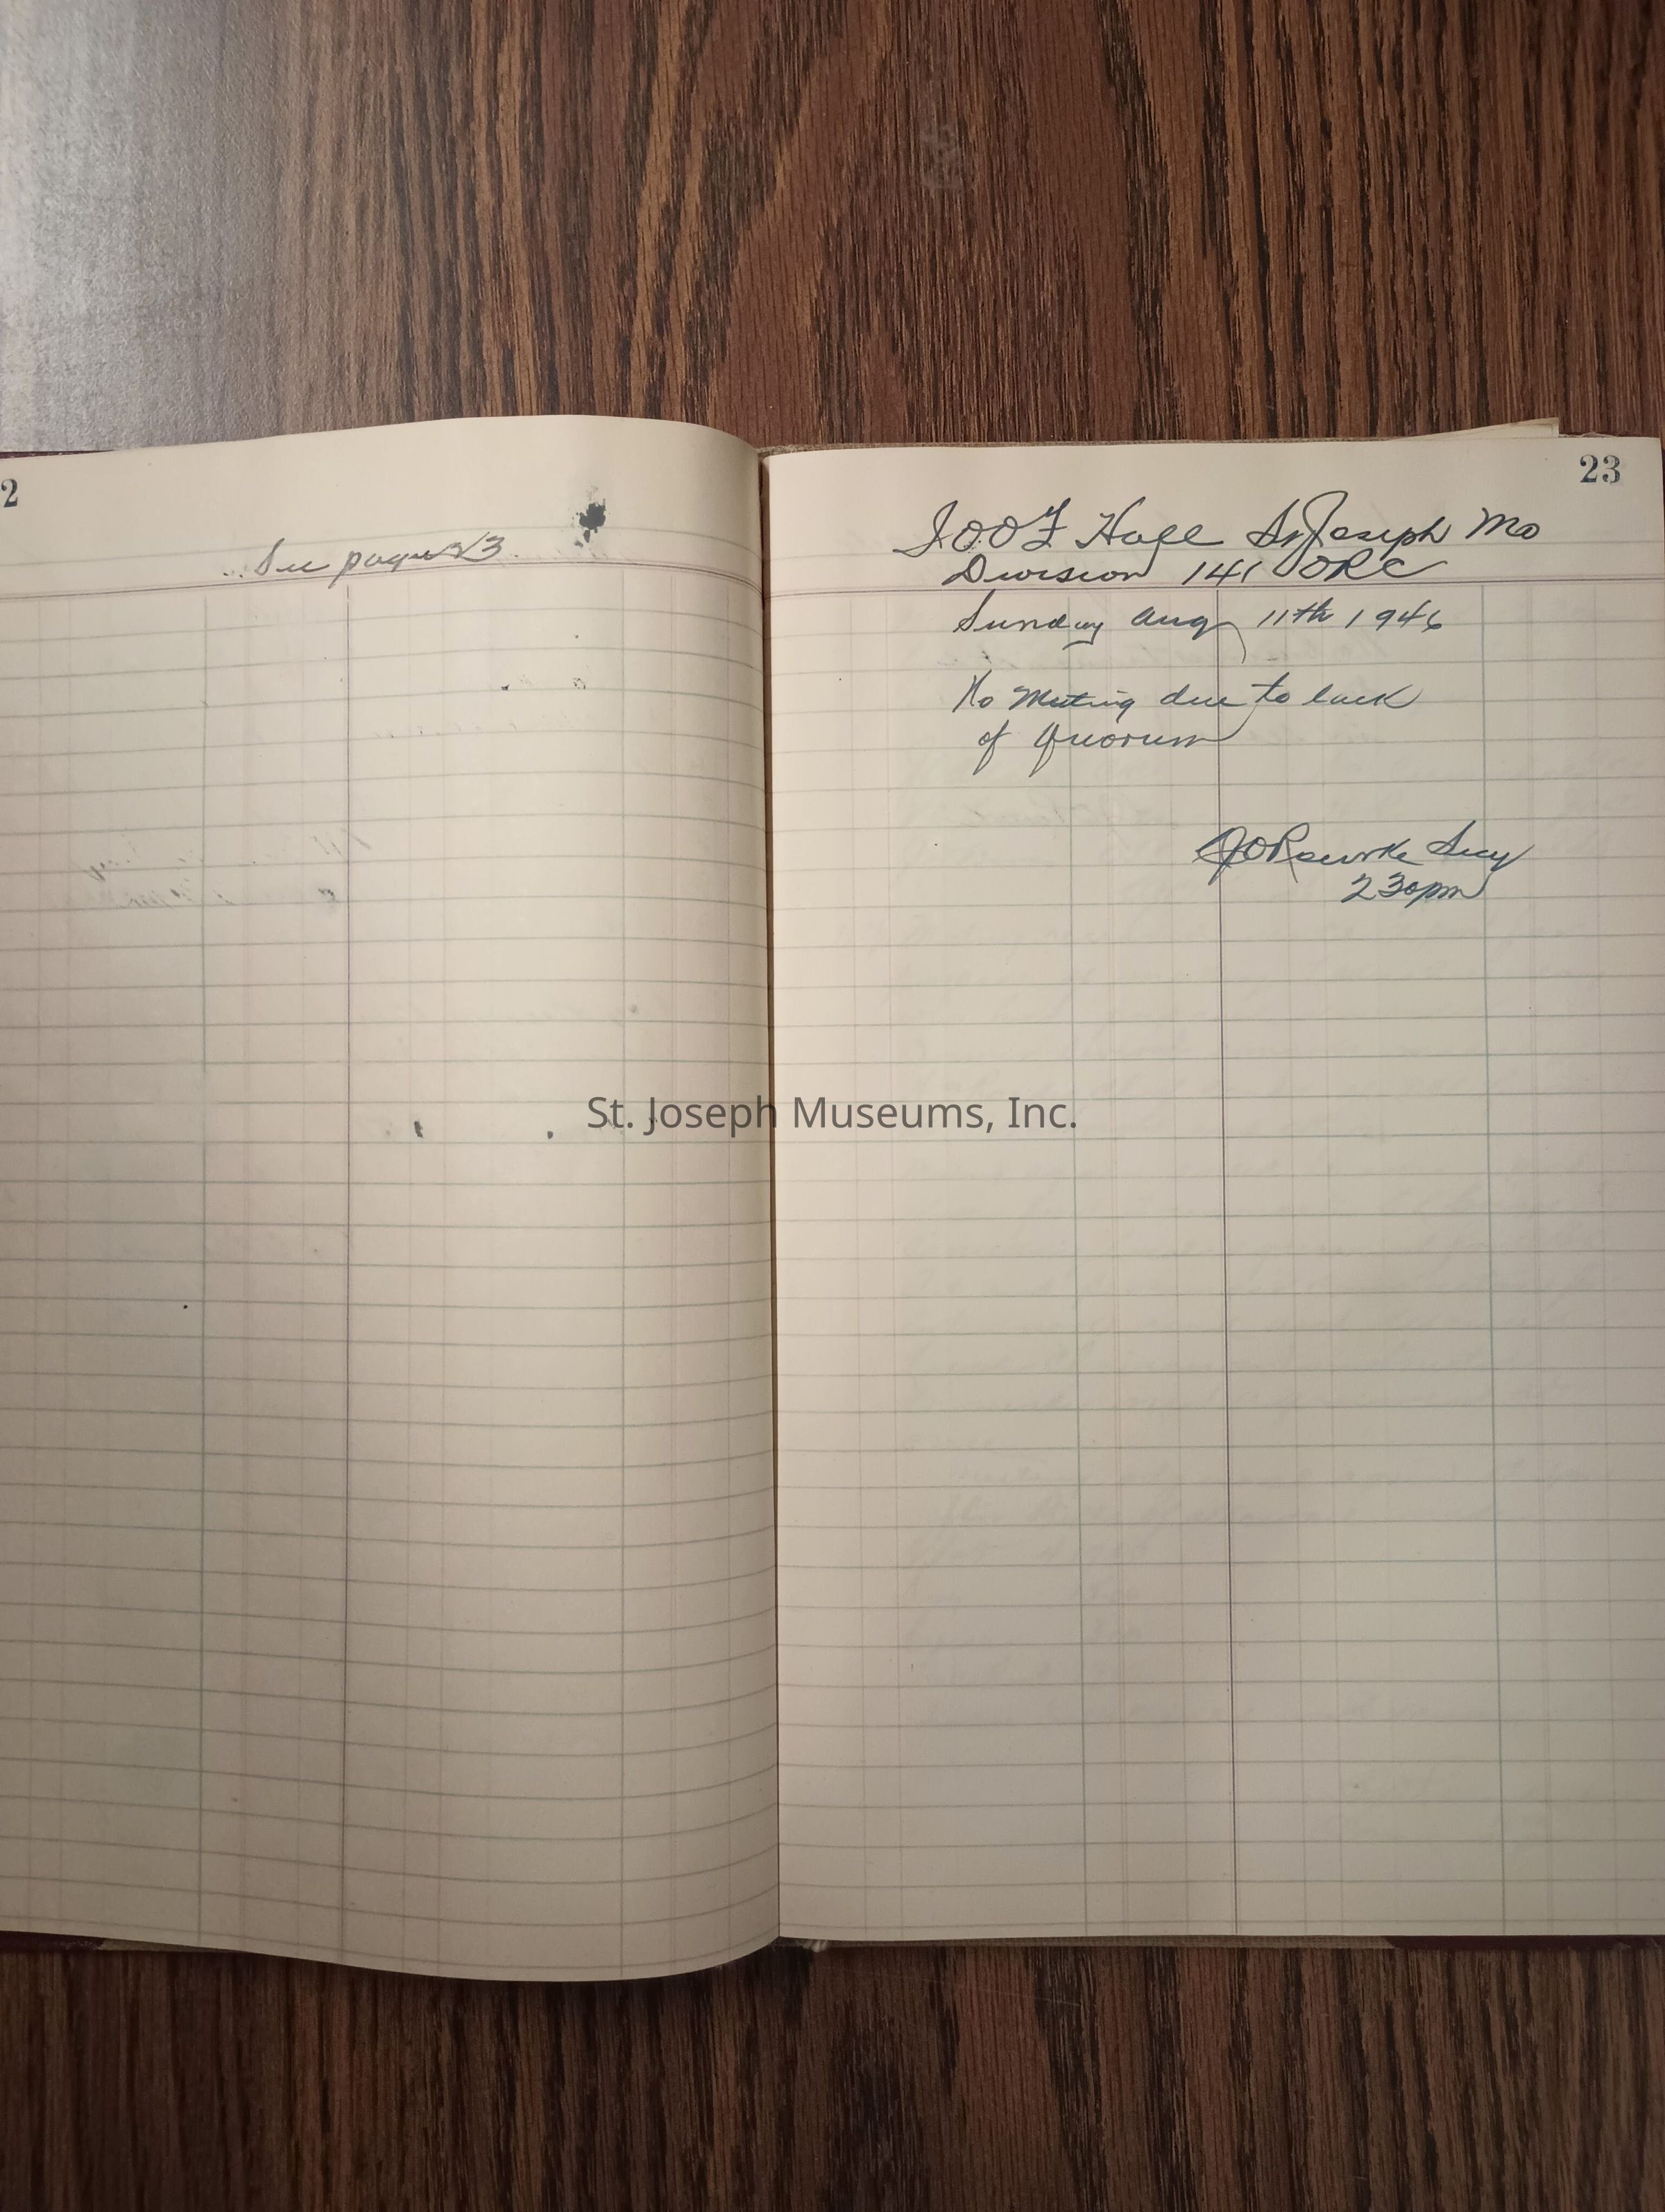 2
See page 23
23
IOOF Hall St Joseph Mo
Division 141 ORC
Sunday Aug 11th 1946
No Meeting due to lack
of Quorum
JORourke Secy
230pm
St. Joseph Museums, Inc.